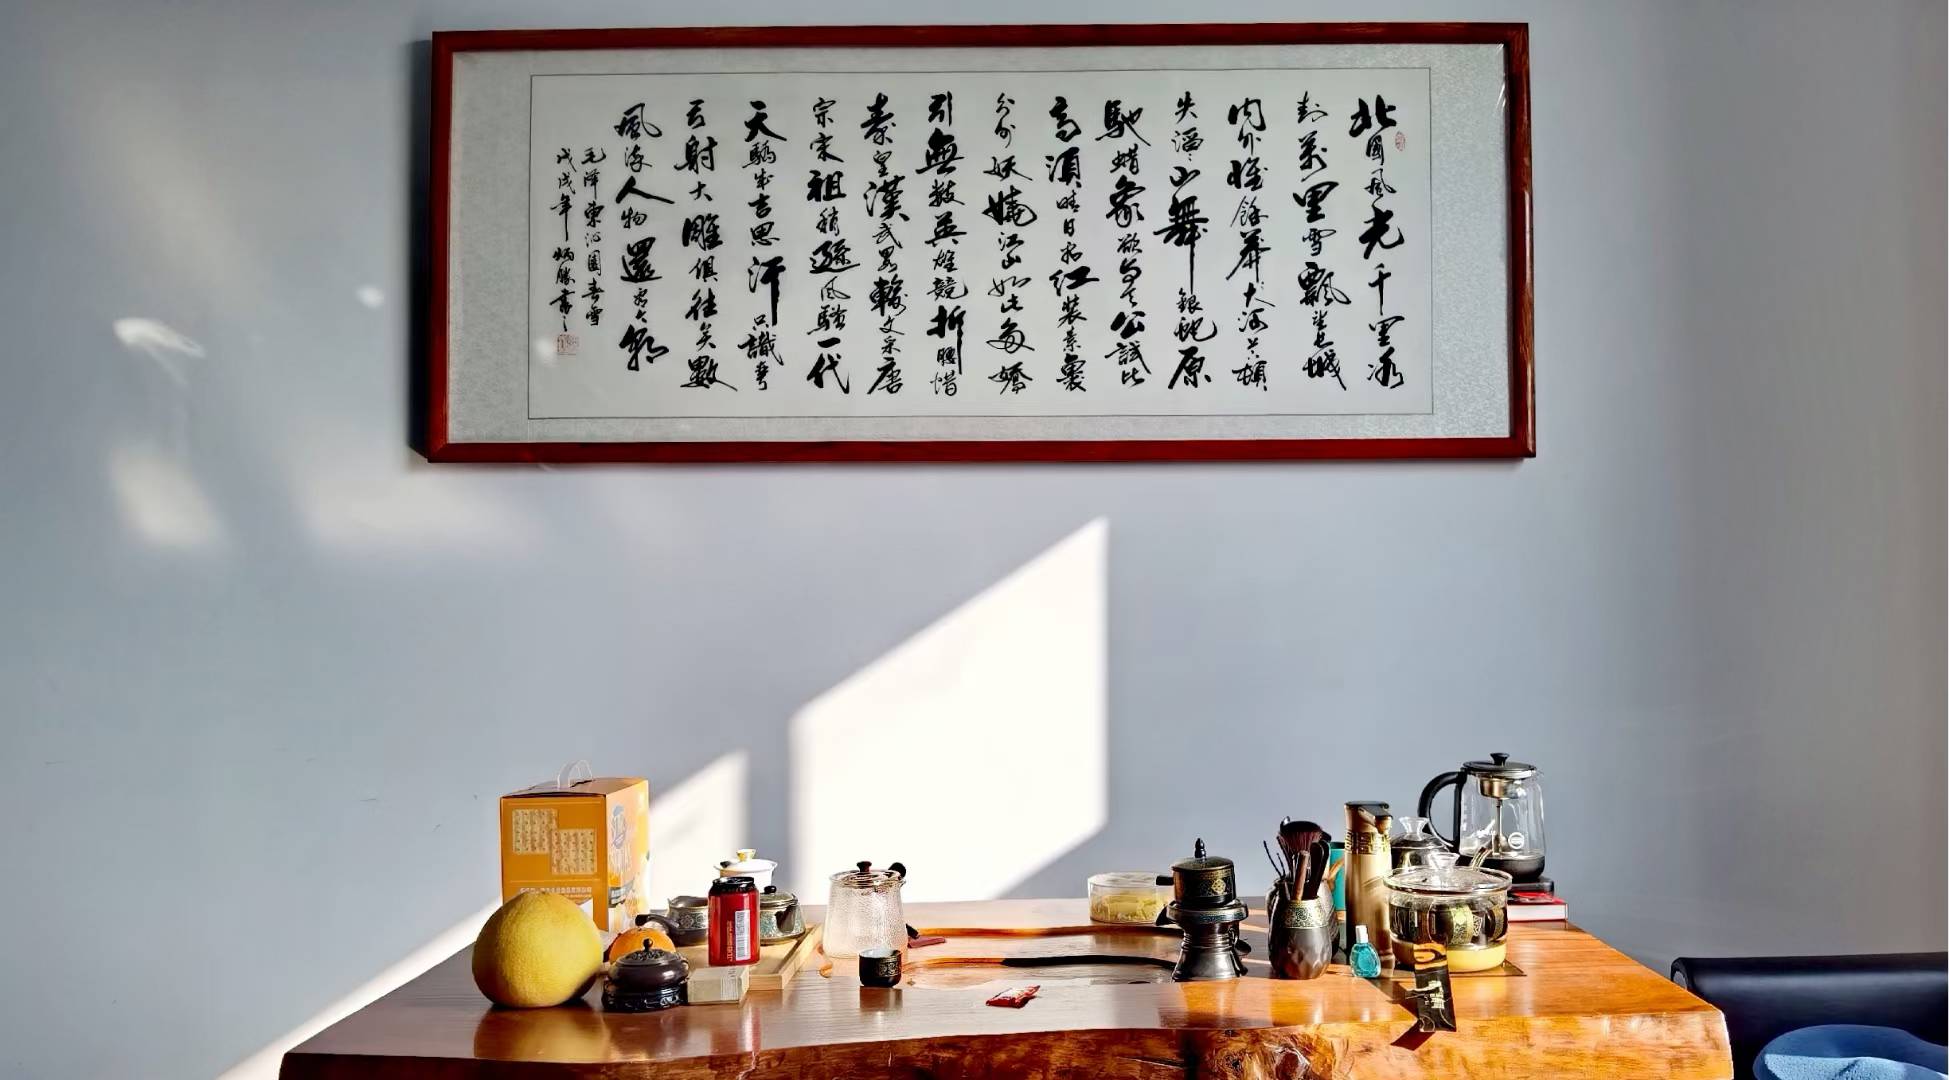 北國風光千里冰
封萬里雪飄望長城
內外惟餘莽大河上下頓
失滔〻山舞銀蛇原
馳蠟象欲與天公試比
高須晴日看紅裝素裹
分外妖嬈江山如此多嬌
引無數英雄競折腰惜
秦皇漢武略輸文采唐
宗宋祖稍遜風騷一代
天驕成吉思汗只識彎
弓射大雕俱往矣數
風流人物還看今朝
毛澤東沁園春雪
戊戌年炳勝書